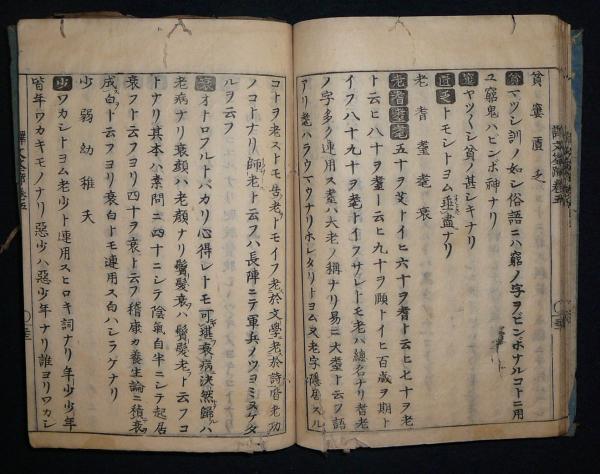 貧 窶 匱 乏
貧 マツシ訓ノ如シ俗語ニハ窮ノ字ヲビンボナルコトニ用
ユ窮鬼ハビンボ神ナリ
窶 ヤツヽシ貧ノ甚シキナリ
匱乏 トモシトヨム垂盡ナリ
老 耆 耋 耄 衰
老耆耋耄 五十ヲ艾トイヒ六十ヲ耆ト云ヒ七十ヲ老
ト云ヒ八十ヲ耋ト云ヒ九十ヲ
イヒ百歳ヲ期ト
イフ八十九十ヲ耄トイフサレトモ老ハ總名ナリ耆老
ノ字多ク連用ス耋ハ大老ノ稱ナリ易ニ大耋ト云フ語
アリ耄ハラウマウナリホレタリトヨム又老字隱居スル
コトヲ老ストモ告老トモイフ老於文學老於詩皆老功
ノコトナリ師老ト云フハ長陣ニテ軍兵ノツヨミヌケタ
ルヲ云フ
衰 オトロフルトバカリ心得レトモ可堪衰病決然歸ハ
老病ナリ衰顔ハ老顔ナリ鬢髮衰ハ鬢髮老ト云フコ
トナリ其本ハ素問ニ四十ニシテ陰氣自半ニシテ起居
衰フト云フヨリ四十ヲ衰ト云フ稽康カ養生論ニ積衰
成白ト云フヨリ衰白トモ連用ス白ハシラゲナリ
少 弱 幼 稚 夭
少 ワカシトヨム老少ト連用スヒロキ詞ナリ年少少年
皆年ワカキモノナリ惡少ハ惡少年ナリ誰ヨリワカシ